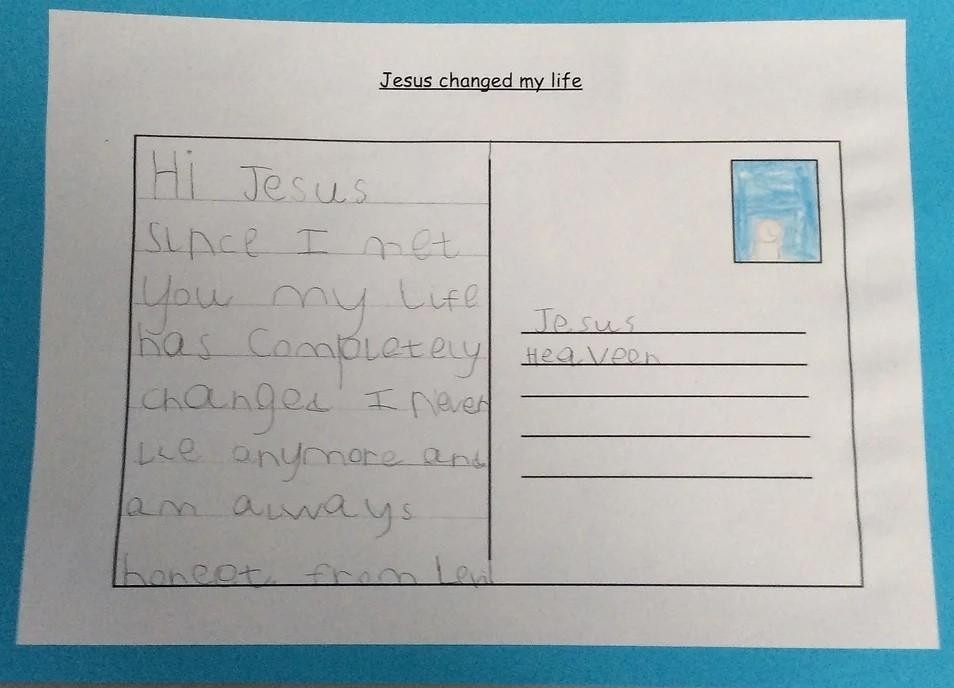 Jesus changed my life
Hi Jesus
since I met
you my life
has completely
changed I never
lie anymore and
am always
honest. from Levi
Jesus
Heaveen